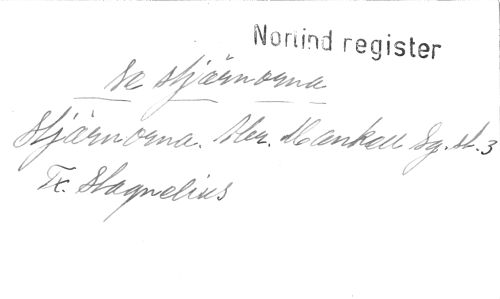 Norlind register
Se stjärnorna
Stjärnorna. Abr. Mankell Sg. st. 3
Tx. Stagnelius